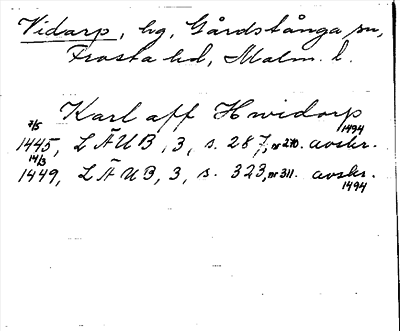 Vidarp, bg, Gårdstånga sn,
Frosta hd, Malm. l.
Karl aff Hwidorp
7/5 1494
1445, LÄUB, 3, s. 287, nr 270. avskr.
14/3
1449, LÄUB, 3, s. 323, nr 311. avskr.
1494